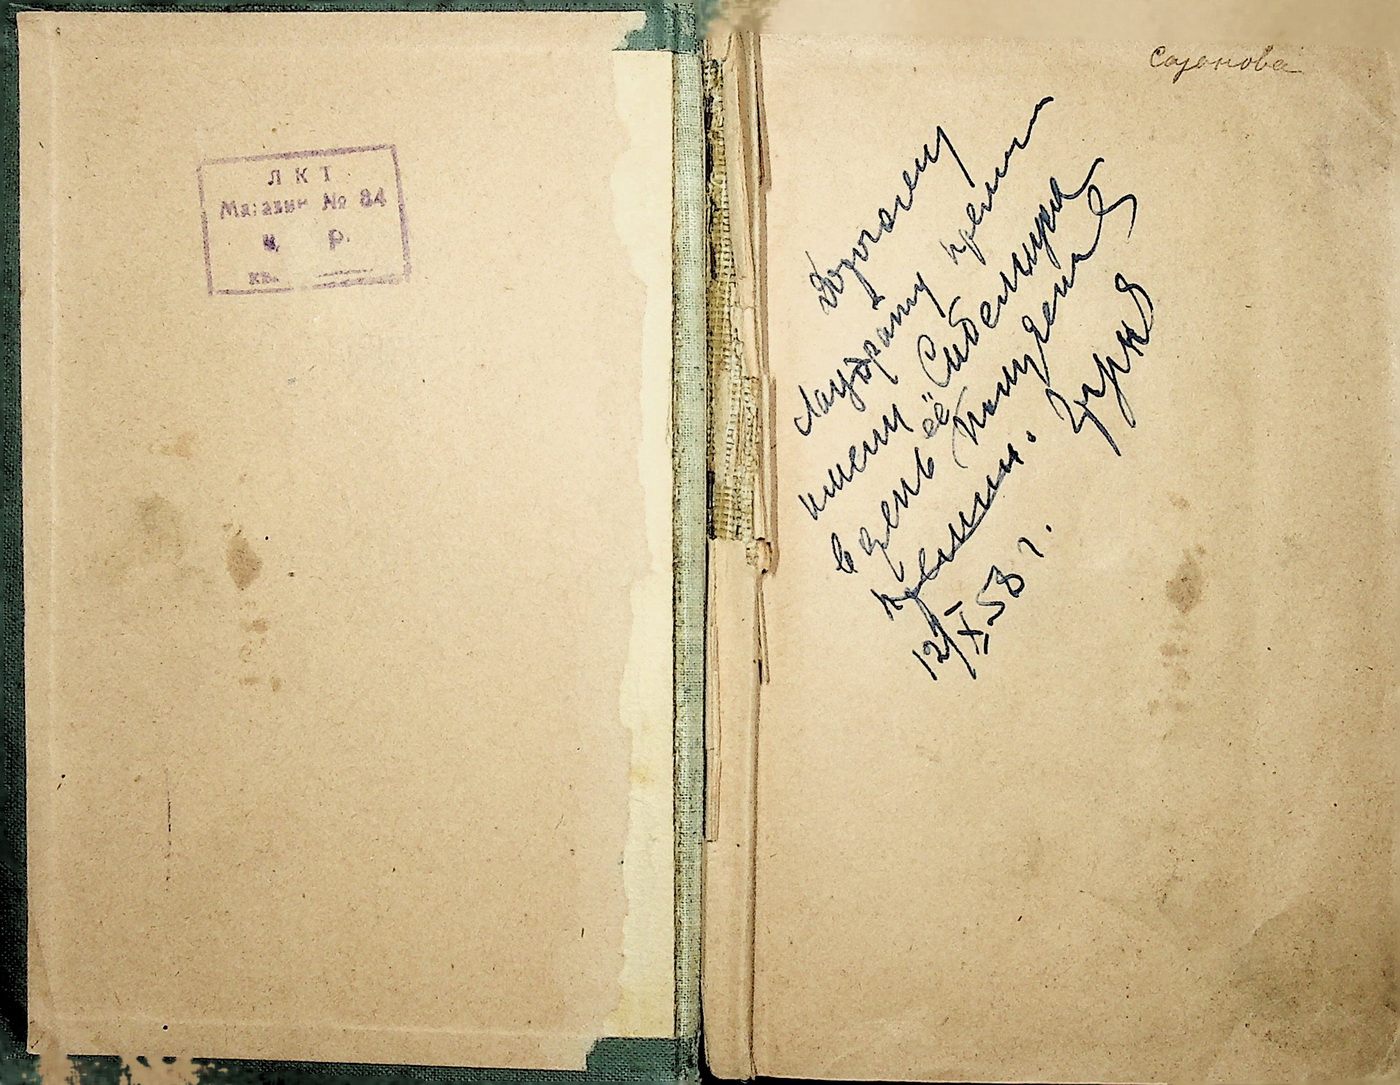 Л К Т
Магазин № 84
ц. р.
кв.
Сазонова
Дорогому
Лауреату премии
имени Сибелиуса
в день её получения
премии. Заря
12/X 58 г.